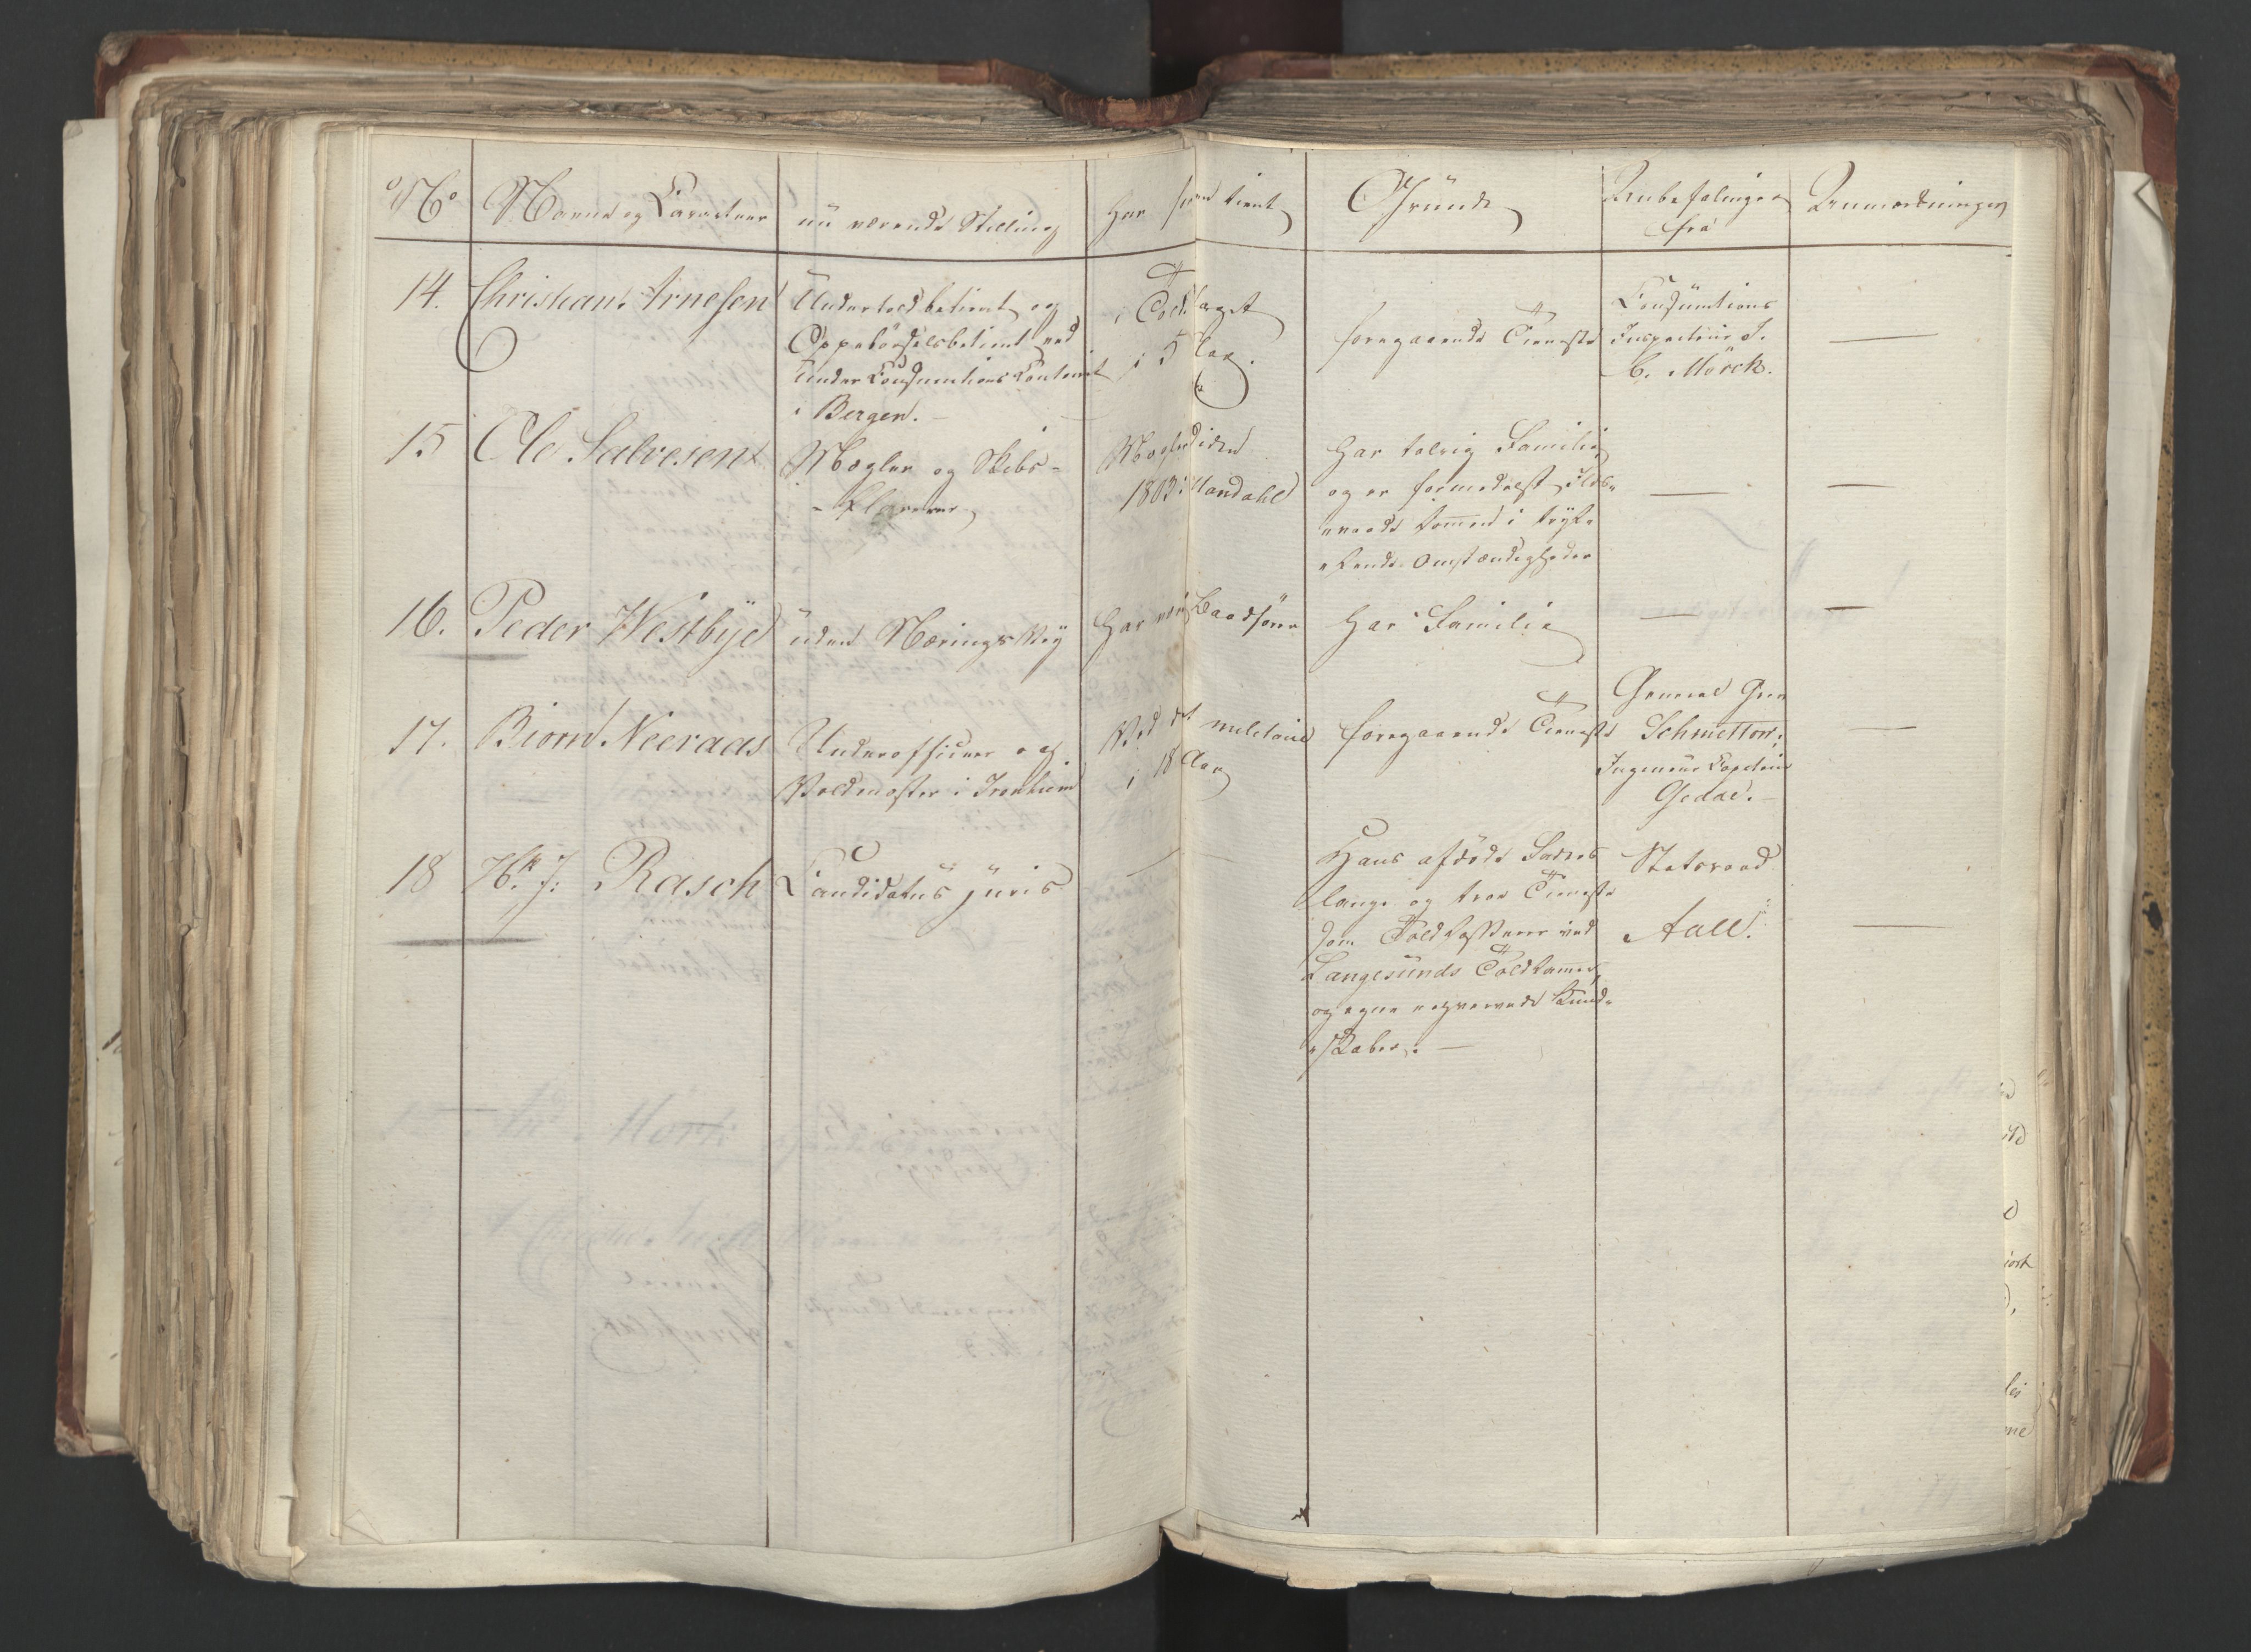 No
Navne og Caracteer
nu værende Stilling
Har forud tient
Grunde
Anbefalinger
fra
Anmærkninger
14.
Christian Arnesen
Undertoldbetient og
Oppebörselsbetient ved
Under Consumtions Contoiret
i Bergen. –
i Toldfaget
i 5 Aar.
foregaaende Tieneste
Consumtions
Inspecteur J.
C. Mörck.
—
15
Ole Salvesen
Mægler og Skibs-
- Clarerer
Mægler siden
1803 i Mandahl
Har talrig Familie
og er formedelst Ilds-
-vaade kommen i tryk-
-kende Omstændigheder
—
—
16.
Peder Westbye
uden Nærings Vey
Har været Baadförer
Har Familie
—
—
17.
Biörn Neeraas
Underofficeer og
Voldmester i Tronhiem
Ved det militaire
i 18 Aar
foregaaende Tieneste
General Grev
Schmettow;
Ingenieur Capitain
Gedde. –
—
18
Hr. J: Rasch
Candidatus juris
—
Hans afdöde Faders
lange og troe Tieneste
som Toldkasserer ved
Langesunds Toldkammer,
og egne erhvervede Kund-
-skaber. —
Statsraad
Aall.
—